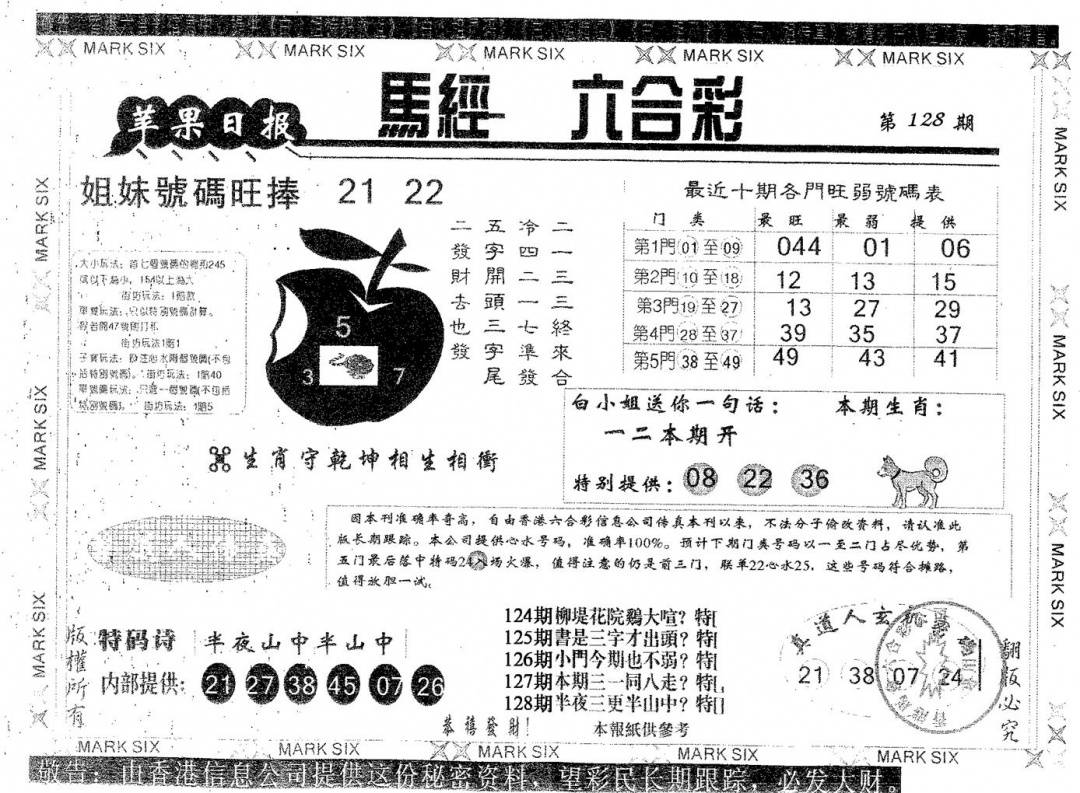 MARK SIX MARK SIX MARK SIX MARK SIX MARK SIX
苹果日报
馬經 六合彩
第128期
姐妹號碼旺捧 21 22
大小玩法：
街坊玩法：1賠
街坊玩法1賠1
街坊玩法：1賠40
街坊玩法：1賠5
5
3 7
二一三三終來合
冷四二一七準發
五字開頭三字尾
二發財去也發
最近十期各門旺弱號碼表
门类 最旺 最弱 提供
第1門 01 至 09 044 01 06
第2門 10 至 18 12 13 15
第3門 19 至 27 13 27 29
第4門 28 至 37 39 35 37
第5門 38 至 49 49 43 41
白小姐送你一句话： 本期生肖：
一二本期开
特别提供： 08 22 36
生肖守乾坤相生相衝
因本刊准确率奇高，自由香港六合彩信息公司传真本刊以来，不法分子偷改资料，请认准此
版长期跟踪。本公司提供心水号码，准确率100%。预计下期门类号码以一至二门占尽优势，第
五门最后落中特码24入场火爆，值得注意的仍是前三门，联单22心水25，这些号码符合摊路，
值得放胆一试。
特码诗 半夜山中半山中
内部提供： 21 27 38 45 07 26
恭禧發財！
124期柳堤花院鷄大喧？特[
125期書是三字才出頭？特[
126期小門今期也不弱？特[
127期本期三一同八走？特[
128期半夜三更半山中？特[]
本報紙供參考
真道人玄机
21 38 07 24
版權所有
翻版必究
MARK SIX MARK SIX MARK SIX MARK SIX MARK SIX
MARK SIX
MARK SIX
MARK SIX
MARK SIX
MARK SIX
MARK SIX
敬告：由香港信息公司提供这份秘密资料，望彩民长期跟踪，必发大财。